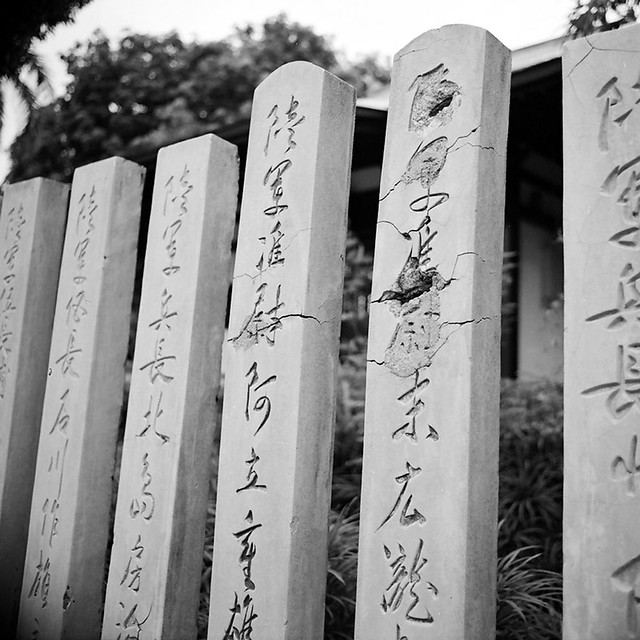 陸軍兵長中
軍准尉末広瀧
陸軍准尉阿立重雄
陸軍兵長北島房
陸軍伍長石川作
陸軍